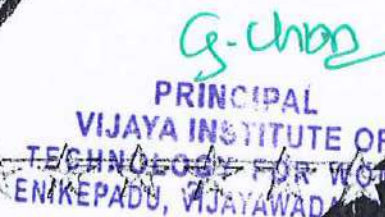 PRINCIPAL
VIJAYA INSTITUTE OF
TECHNOLOGY FOR
ENIKEPADU, VIJAYAWADA